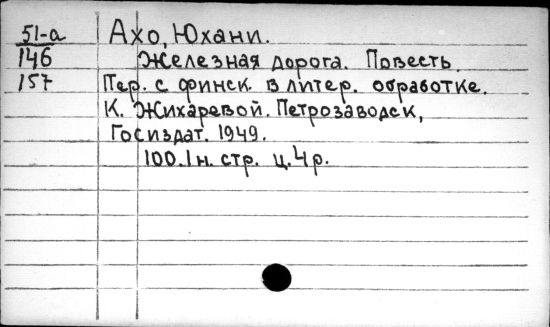 51-а Ахо, Юхани.
146 Железная дорога. Повесть
157 Пер. с финск. в литер. обработке.
К. Жихаревой. Петрозаводск,
Госиздат. 1949.
100.1н. стр. ц. 4 р.